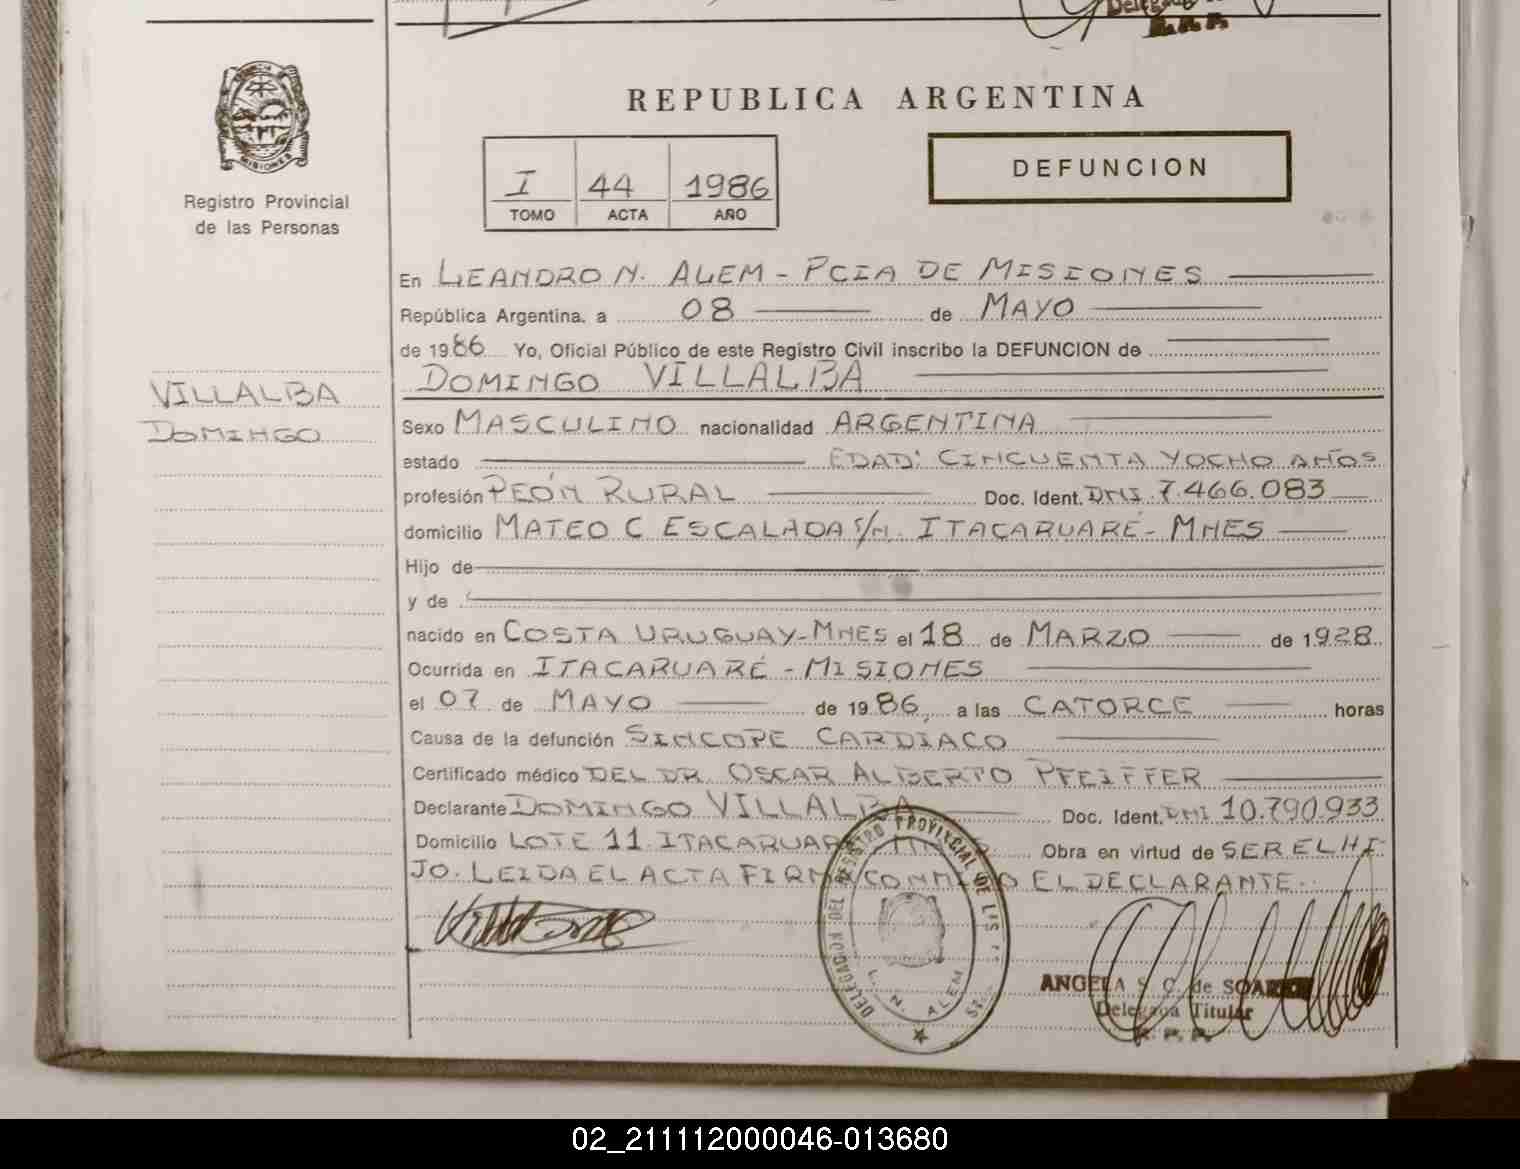 Delegado
R.P.P.
PROVINCIA DE
MISIONES
Registro Provincial
de las Personas
REPUBLICA ARGENTINA
I 44 1986
TOMO ACTA AÑO
DEFUNCION
En LEANDRO N. ALEM - PCIA DE MISIONES
República Argentina, a 08 de MAYO
de 1986 Yo, Oficial Público de este Registro Civil inscribo la DEFUNCION de
DOMINGO VILLALBA
VILLALBA
DOMINGO
Sexo MASCULINO nacionalidad ARGENTINA
estado EDAD: CINCUENTA Y OCHO AÑOS
profesión PEÓN RURAL Doc. Ident. DNI 7.466.083
domicilio MATEO C ESCALADA S/N. ITACARUARÉ - MNES
Hijo de
y de
nacido en COSTA URUGUAY - MNES el 18 de MARZO de 1928
Ocurrida en ITACARUARÉ - MISIONES
el 07 de MAYO de 1986, a las CATORCE horas
Causa de la defunción SINCOPE CARDIACO
Certificado médico DEL DR. OSCAR ALBERTO PFEIFFER
Declarante DOMINGO VILLALBA Doc. Ident. DNI 10.790.933
Domicilio LOTE 11 ITACARUARÉ Obra en virtud de SER EL HI
JO. LEIDA EL ACTA FIRMA CONMIGO EL DECLARANTE.
DELEGACION DEL REGISTRO PROVINCIAL DE LAS
L. N. ALEM
ANGELA S. C. de SOAREZ
Delegada Titular
R. P. P.
02_211112000046-013680